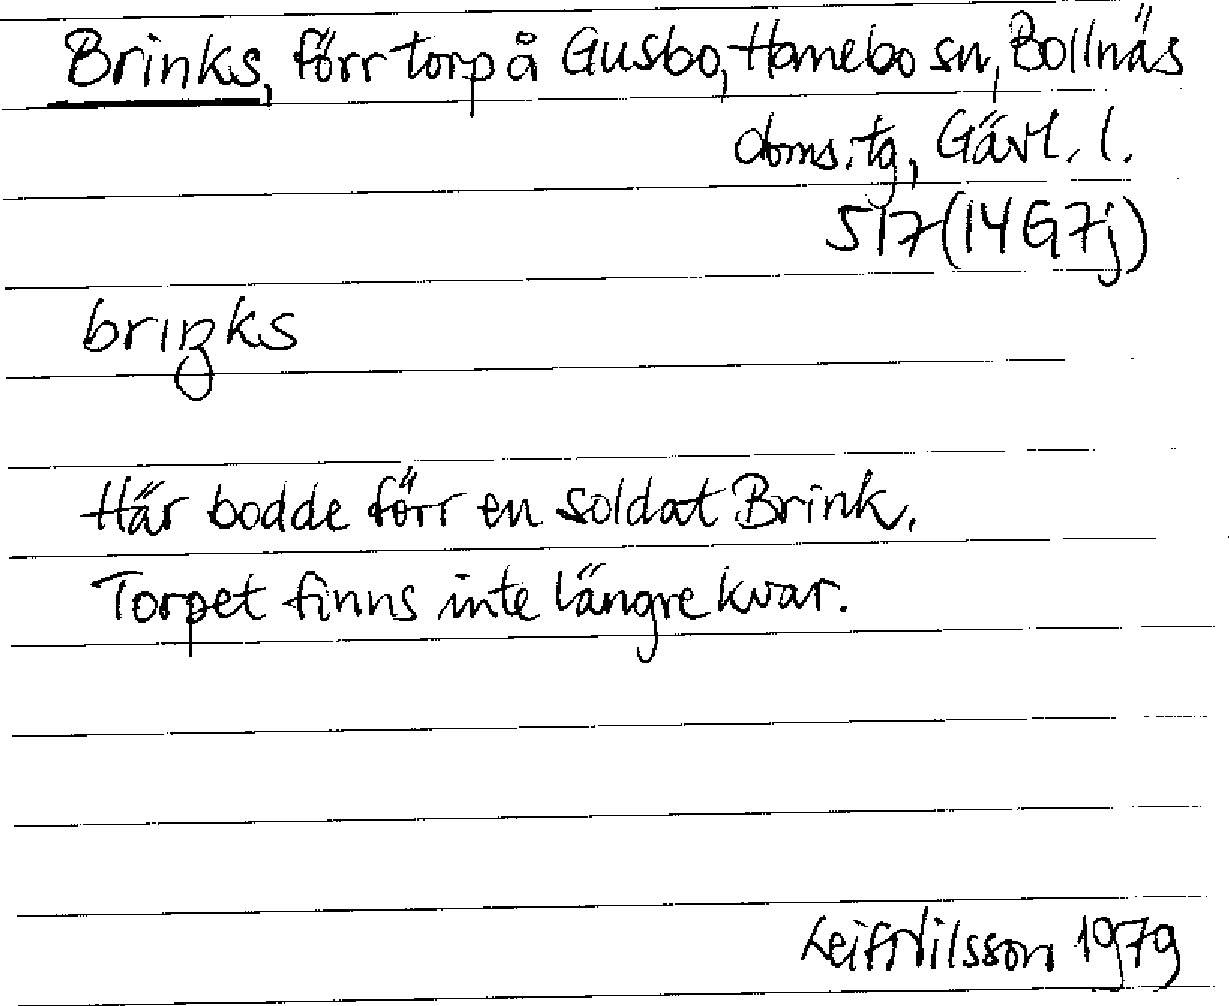 Brinks, förr torp å Gusbo, Hanebo sn, Bollnäs
doms.tg, Gävl. l.
517 (14G7j)
briŋks
Här bodde förr en soldat Brink.
Torpet finns inte längre kvar.
Leif Nilsson 1979